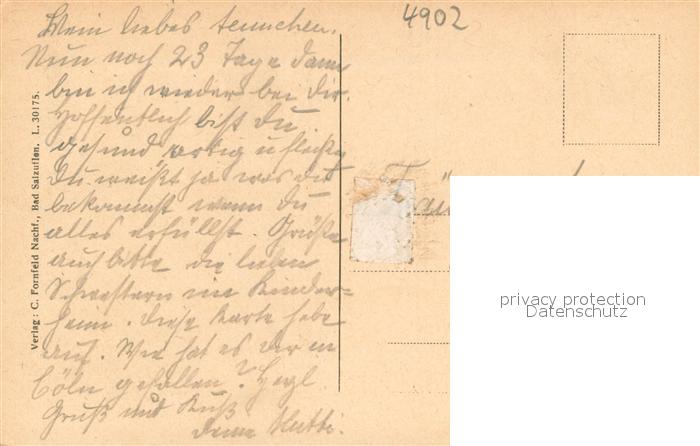 4902
Mein liebes Aennchen.
Nun noch 23 Tage dann
bin ich wieder bei Dir.
Hoffentlich bist Du
gesund artig u fleißig
Du weißt ja was Du
bekommst wenn Du
alles erfüllst. Grüße
auch bitte die lieben
Schwestern im Kinder=
heim. Diese Karte hebe
auf. Wie hat es Dir in
Cöln gefallen? Herzl
Gruß und Kuß
Deine Mutti.
Verlag: C. Fornfeld Nachf., Bad Salzuflen. L. 30175.
privacy protection
Datenschutz